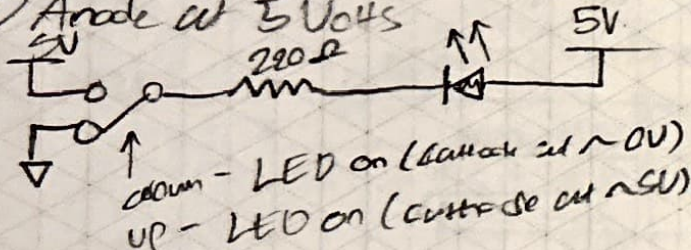 Anode at 5 Volts
5V
220Ω
5V
down - LED on (cathode at ~0V)
up - LED on (cathode at ~5V)